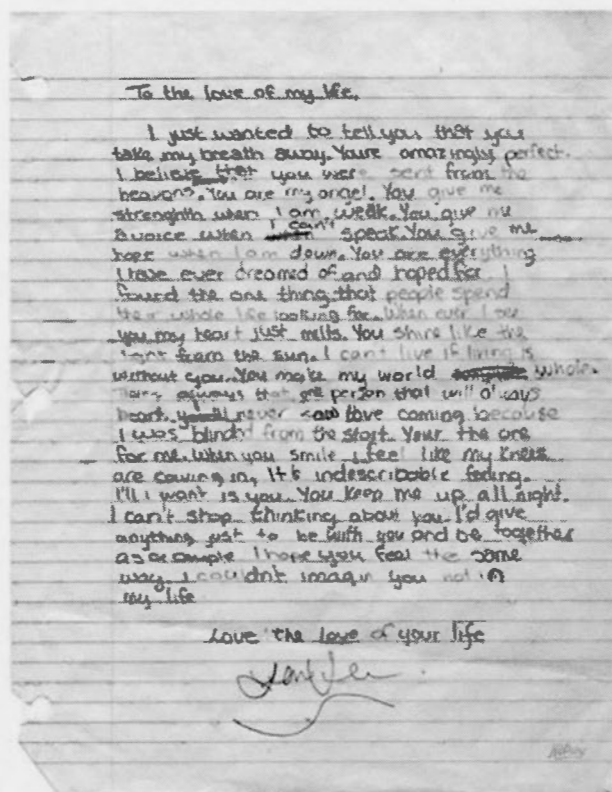 To the love of my life,
I just wanted to tell you that you
take my breath away. Youre amazingly perfect.
I believe that you were sent from the
heavens. You are my angel. You give me
strenghth when I am weak. You give me
a voice when I can't speak. You give me
hope when I am down. You are everything
I have ever dreamed of and hoped for. I
found the one thing that people spend
their whole life looking for. When ever I see
you my heart just melts. You shine like the
light from the sun. I cant live if living is
without you. You make my world whole.
always that person that will always
heart. never saw love coming because
I was blind from the start. Your the one
for me. When you smile i feel like my knees
are caving in, It's indescribable feeling.
i want is you. You keep me up all night.
I can't stop thinking about you. I'd give
anything just to be with you and be together
as a couple I hope you feel the same
way. I couldnt imagin you not in
my life
Love the love of your life